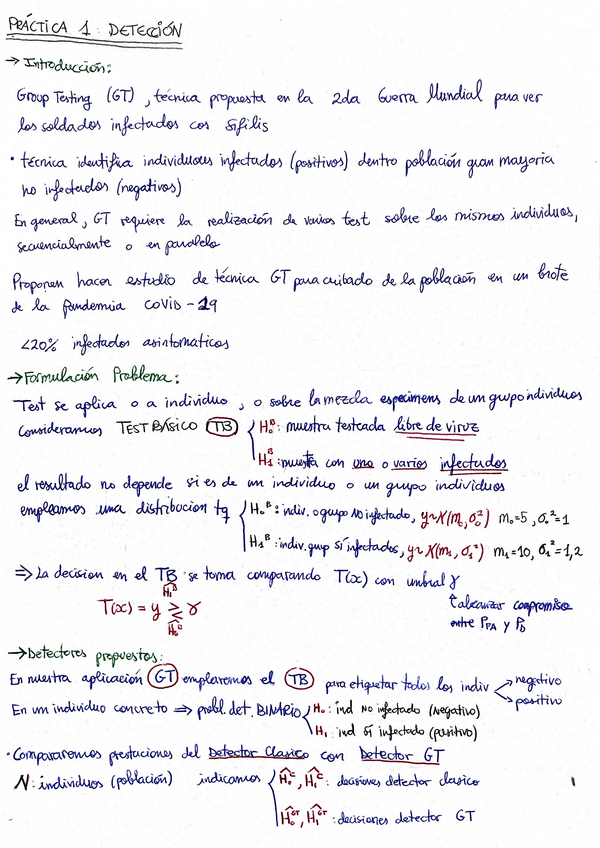 PRÁCTICA 1: DETECCIÓN
→ Introducción:
Group Testing (GT), técnica propuesta en la 2da Guerra Mundial para ver
los soldados infectados con Sífilis
• técnica identifica individuos infectados (positivos) dentro población gran mayoria
no infectados (negativos)
En general, GT requiere la realización de varios test sobre los mismos individuos,
secuencialmente o en paralelo
Proponen hacer estudio de técnica GT para cribado de la población en un brote
de la pandemia COVID-19
<20% infectados asintomaticos
→ Formulación Problema:
Test se aplica o a individuo, o sobre la mezcla especimens de un grupo individuos
Consideramos TEST BÁSICO (TB) { H₀ᴮ: muestra testeada libre de virus
H₁ᴮ: muestra con uno o varios infectados
el resultado no depende si es de un individuo o un grupo individuos
empleamos una distribucion tq { H₀ᴮ: indiv. o grupo NO infectado, y~N(m₀,σ₀²) m₀=5, σ₀²=1
H₁ᴮ: indiv. grup SÍ infectados, y~N(m₁,σ₁²) m₁=10, σ₁²=1,2
⇒ La decision en el TB se toma comparando T(x) con umbral γ
T(x) = y ≷ γ
Ĥ₁ᴮ
Ĥ₀ᴮ
↑ alcanzar compromiso
entre P_FA y P_D
→ Detectores propuestos:
En nuestra aplicación (GT) emplearemos el (TB) para etiquetar todos los indiv → negativo
→ positivo
En un individuo concreto ⇒ probl. det. BINARIO { H₀: ind NO infectado (Negativo)
H₁: ind SÍ infectado (positivo)
• Compararemos prestaciones del Detector Clasico con Detector GT
N: individuos (población) indicamos { Ĥ₀ᶜ, Ĥ₁ᶜ: decisiones detector clasico
Ĥ₀ᴳᵀ, Ĥ₁ᴳᵀ: decisiones detector GT